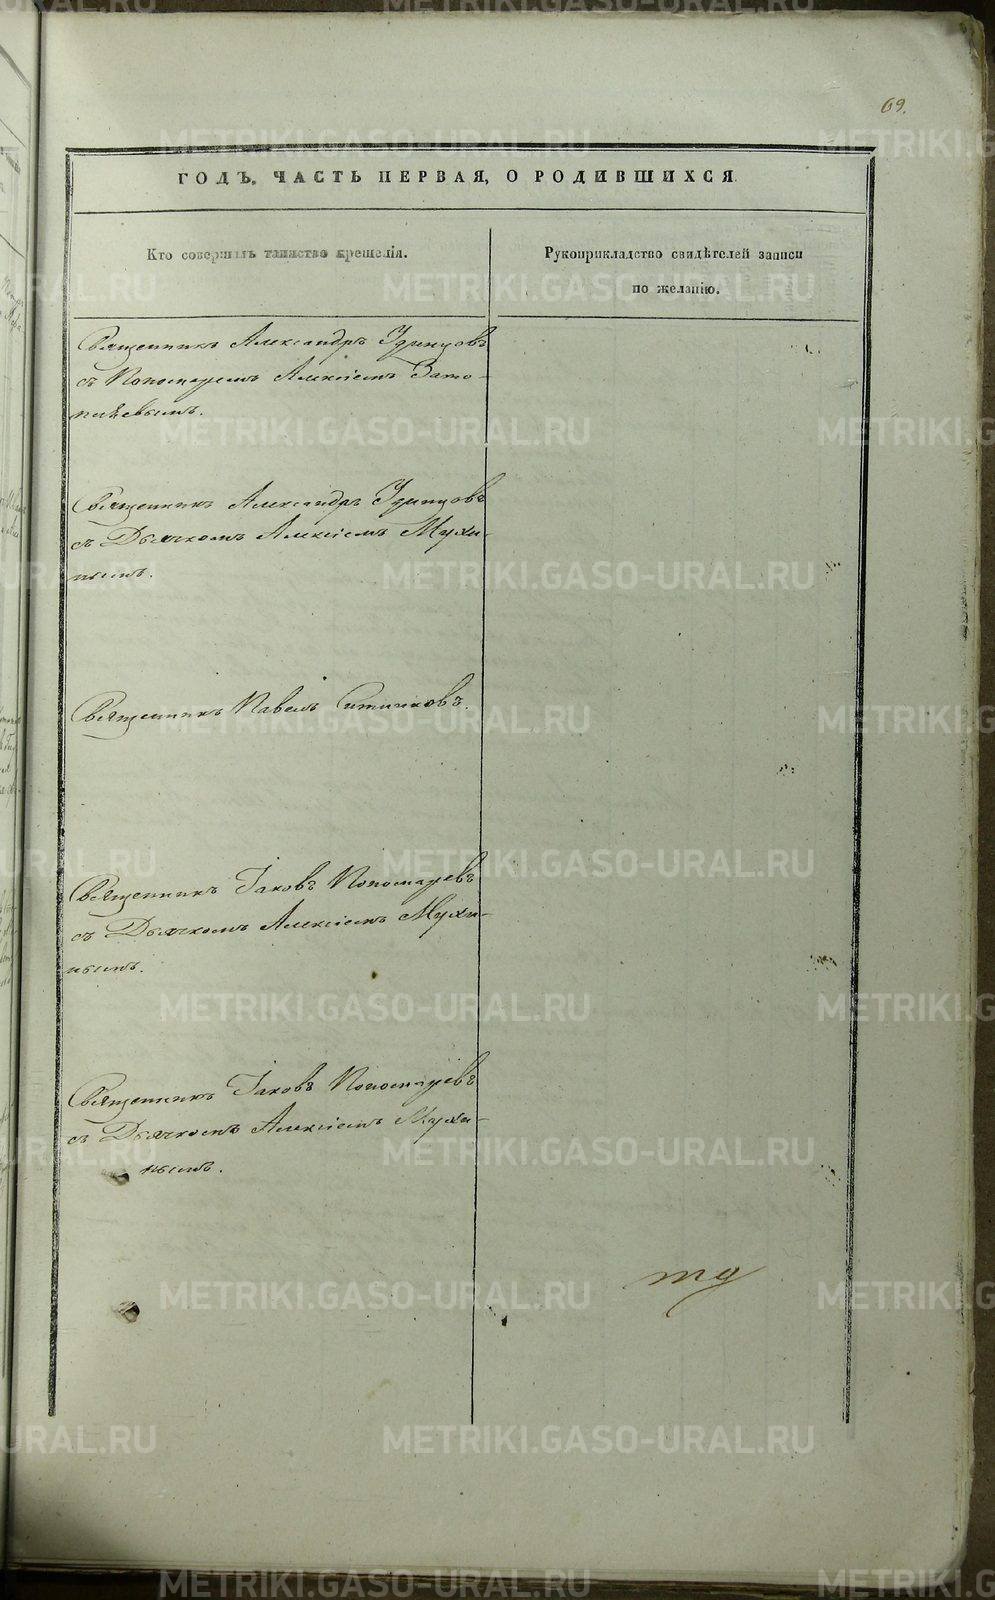 69.
ГОДЪ, ЧАСТЬ ПЕРВАЯ, О РОДИВШИХСЯ
Кто совершилъ таинство крещенія.
Рукоприкладство свидѣтелей записи
по желанію.
Священникъ Александръ Удинцовъ
съ Пономаремъ Алексіемъ Зато-
пляевымъ.
Священникъ Александръ Удинцовъ
съ Дьячкомъ Алексіемъ Мухи-
нымъ.
Священникъ Павелъ Ситниковъ.
Священникъ Іаковъ Пономаревъ
съ Дьячкомъ Алексіемъ Мухи-
нымъ.
Священникъ Іаковъ Пономаревъ
съ Дьячкомъ Алексіемъ Мухи-
нымъ.
METRIKI.GASO-URAL.RU